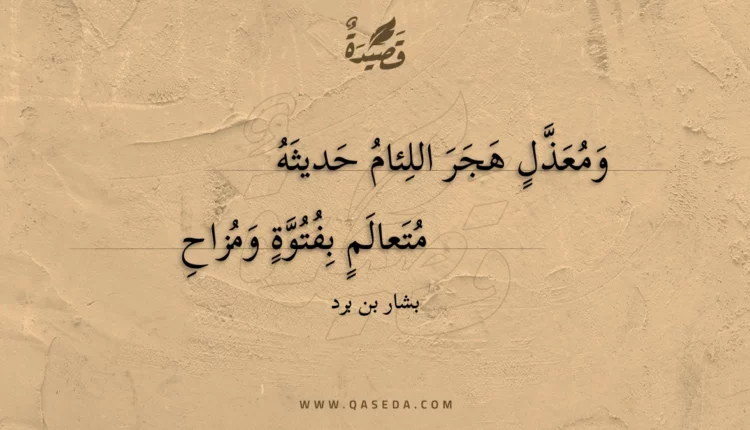 قَصِيدَةٌ
وَمُعَذَّلٍ هَجَرَ اللِئامُ حَديثَهُ
مُتَعالَمٍ بِفُتُوَّةٍ وَمُزاحِ
بشار بن برد
WWW.QASEDA.COM